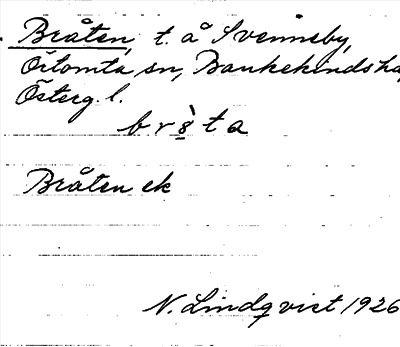 Bråten, t. å Svensby,
Örtomta sn, Bankekinds hd,
Österg. l.
br8̀ta
Bråten ek
N. Lindqvist 1926